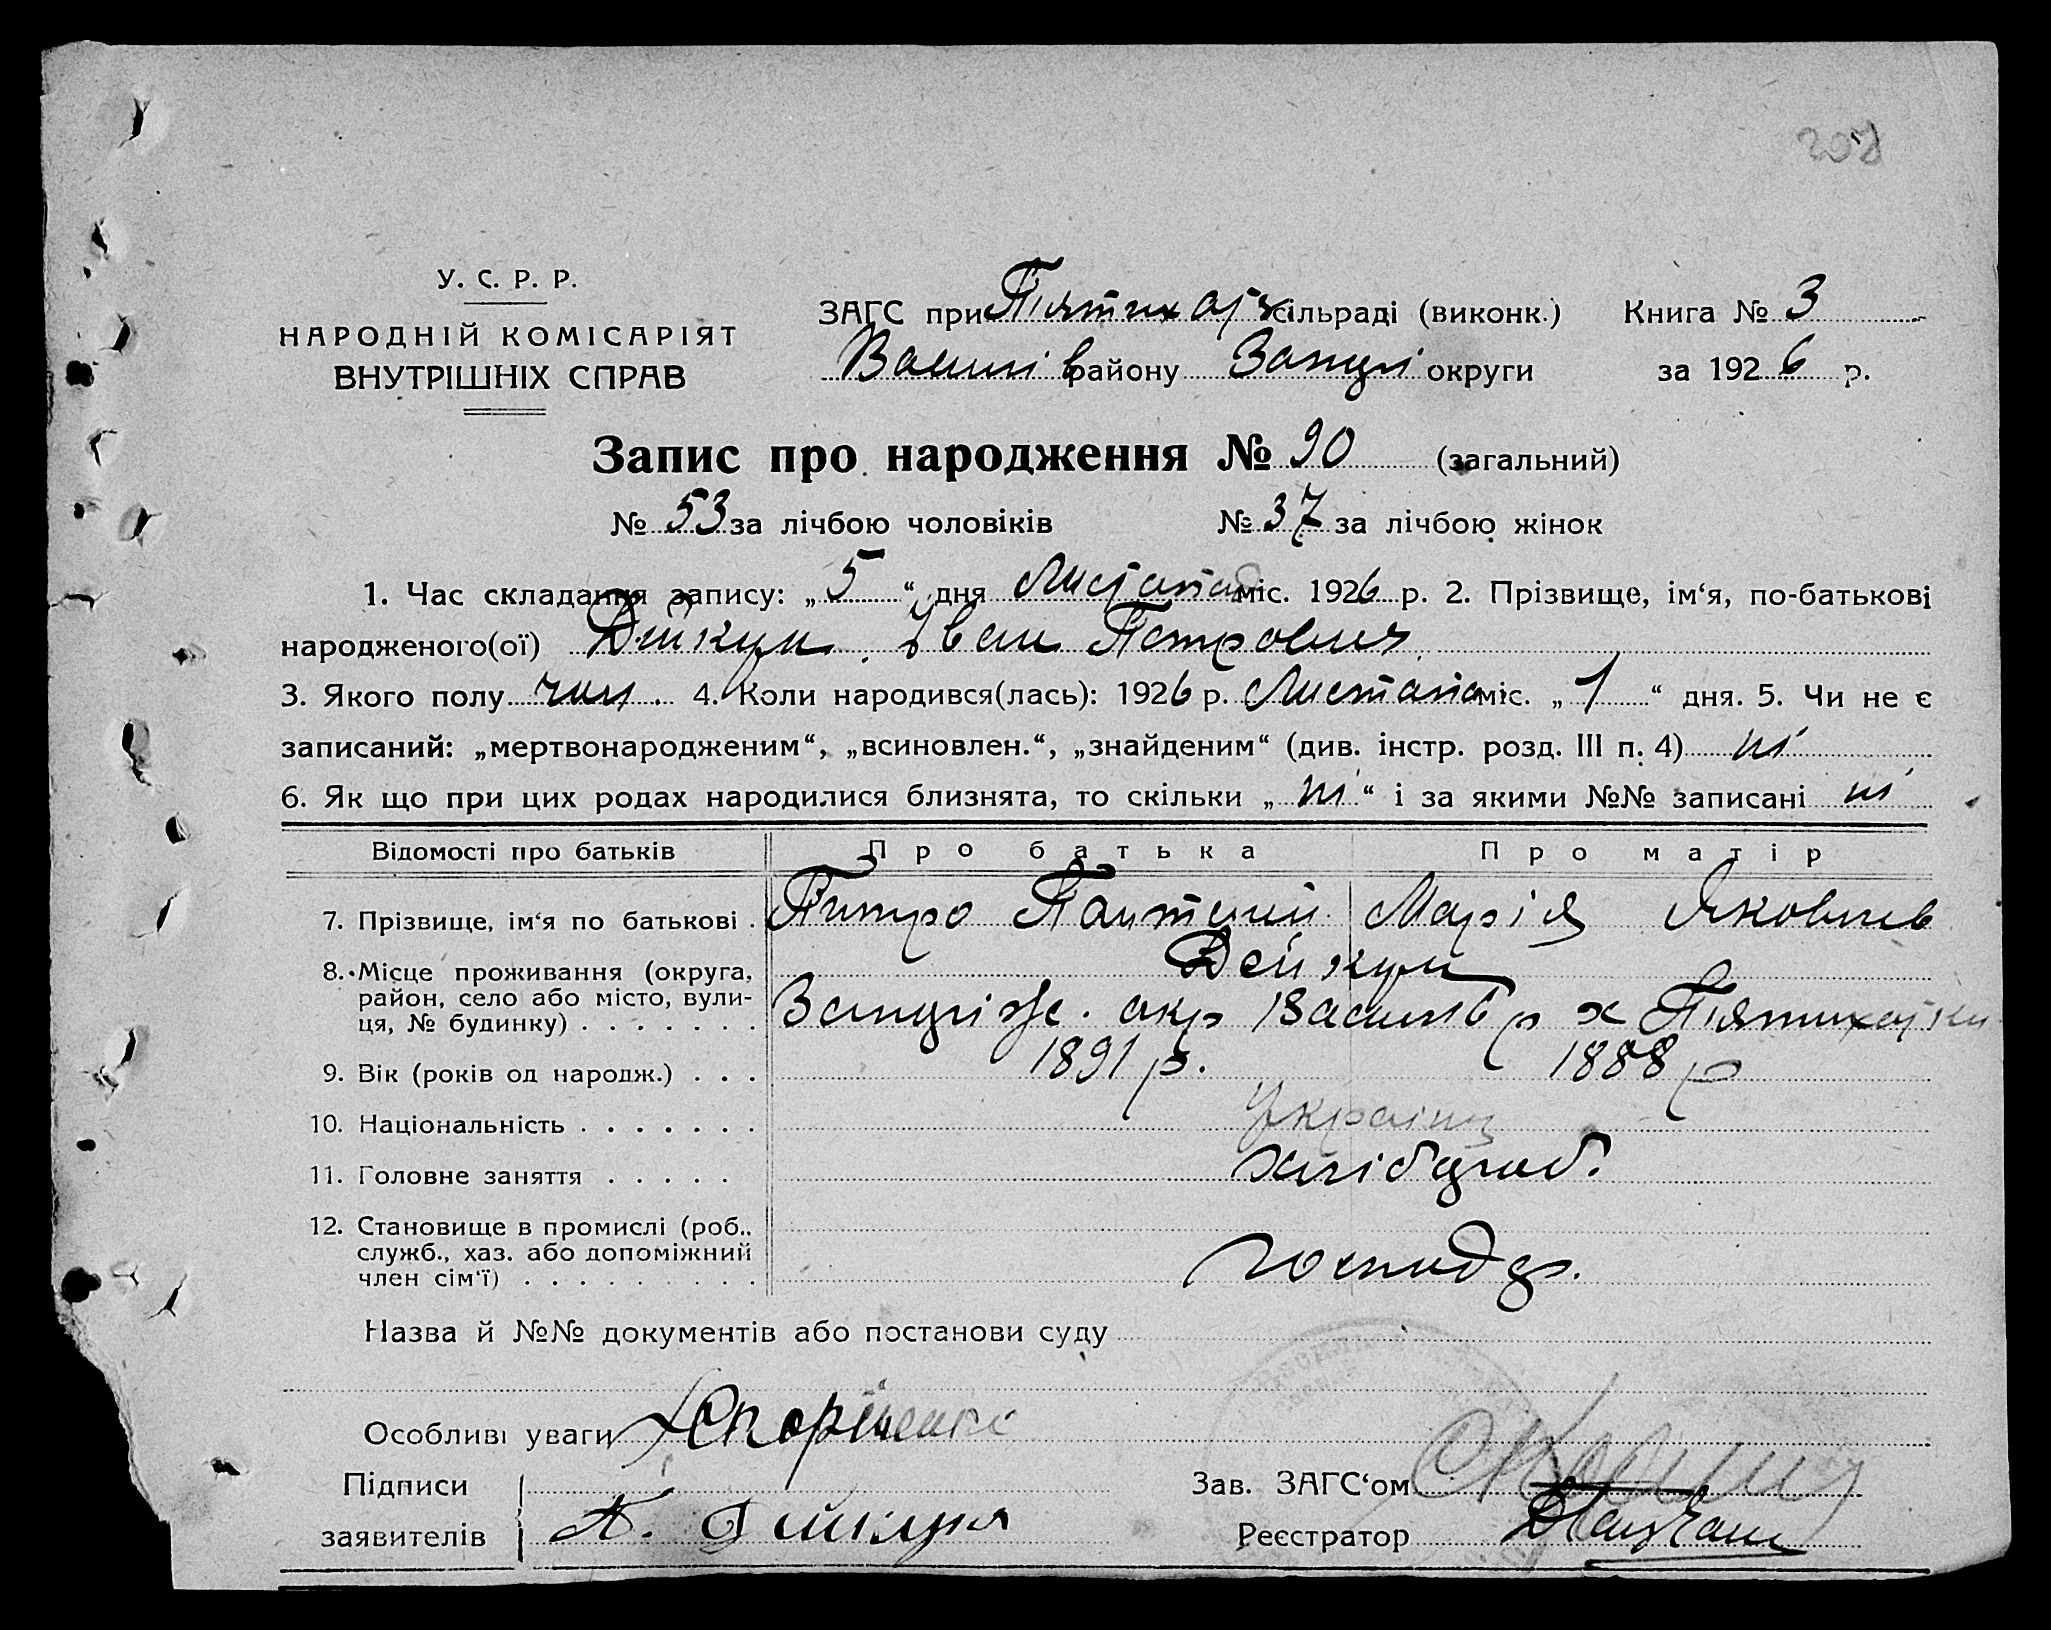 208
У. С. Р. Р.
НАРОДНІЙ КОМІСАРІЯТ
ВНУТРІШНІХ СПРАВ
ЗАГС при Пятихат сільраді (виконк.) Книга № 3
Василів району Запорі округи за 1926 р.
Запис про народження № 90 (загальний)
№ 53 за лічбою чоловіків № 37 за лічбою жінок
1. Час складання запису: „5“ дня Листопад міс. 1926 р. 2. Прізвище, ім‘я, по-батькові
народженого(ої) Дейкун Іван Петрович
3. Якого полу чол. 4. Коли народився(лась): 1926 р. Листопа міс. „1“ дня. 5. Чи не є
записаний: „мертвонародженим“, „всиновлен.“, „знайденим“ (див. інстр. розд. III п. 4) ні
6. Як що при цих родах народилися близнята, то скільки „ні“ і за якими №№ записані ні
Відомості про батьків Про батька Про матір
7. Прізвище, ім‘я по батькові . Питро Пантелий Марія Яковлев
Дейкун
8. Місце проживання (округа,
район, село або місто, вули-
ця, № будинку) . . . . . . . Запоріж. окр Василів р х Пятихатки
9. Вік (років од народж.) . . . 1891 р. 1888 р
10. Національність . . . . . . . Україн
11. Головне заняття . . . . . хлібороб.
12. Становище в промислі (роб.,
служб., хаз. або допоміжний
член сім‘ї) . . . . . . . . . господар.
Назва й №№ документів або постанови суду
Особливі уваги
Підписи
заявителів П. Дейкун
Зав. ЗАГС‘ом
Реєстратор